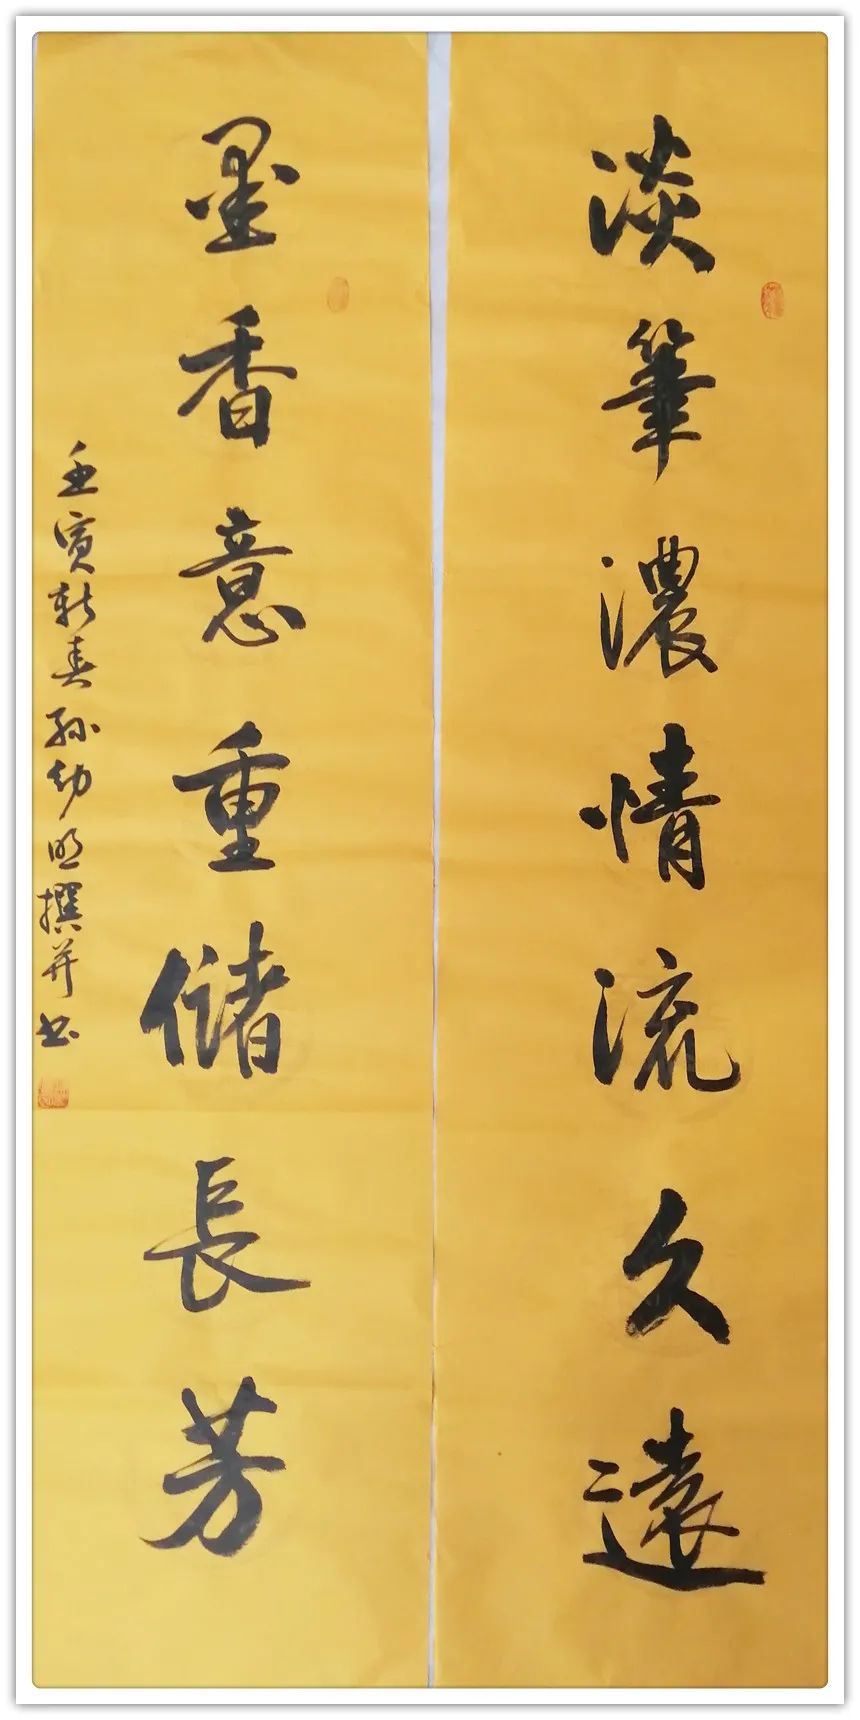 淡筆濃情流久遠
墨香意重儲長芳
壬寅新春孫幼明撰并书